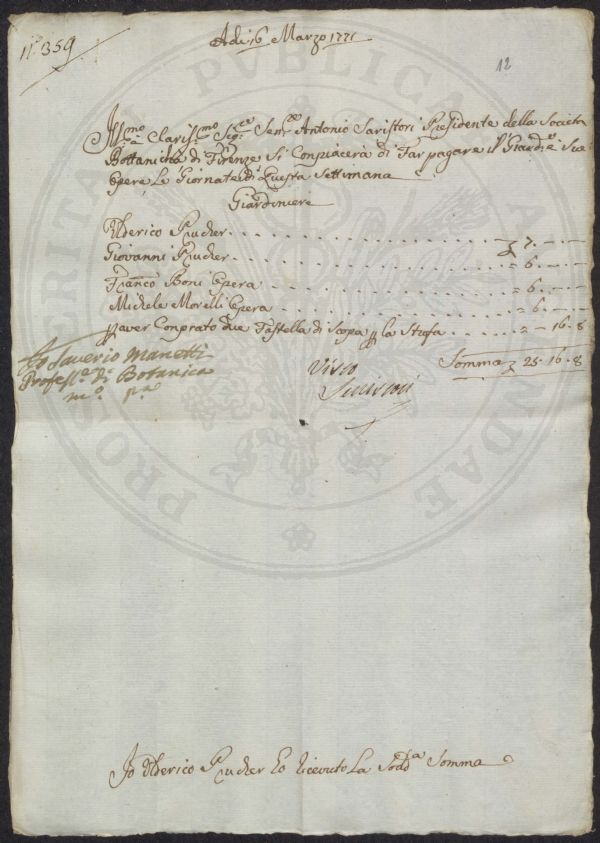 N° 359
Adi 16 Marzo 1771
12
Ill:mo e Claris:mo Sig:re Sen:re Antonio Saristori Presidente della Società
Bottanicha di Firenze Si Conpiacerà di Far pagare il Giard:e Sue
Opere Le Giornate di Questa Settimana
Giardiniere
Ulderico Prucker - 7 . - . -
Giovanni Prucker = 6 . - . -
Fran:co Boni Opera = 6 . - . -
Michele Morelli Opera = 6 . - . -
p aver Conprato due Fastella di Scopa p la Stufa = - 16 - 8
Somma 25 - 16 - 8
Io Saverio Manetti
Profess:e di Botanica
m:o p:a
Visto
Io Ulderico Prucker ho ricevuto La Sod:a Somma
PROSPERITATI PVBLICAE AVGENDAE